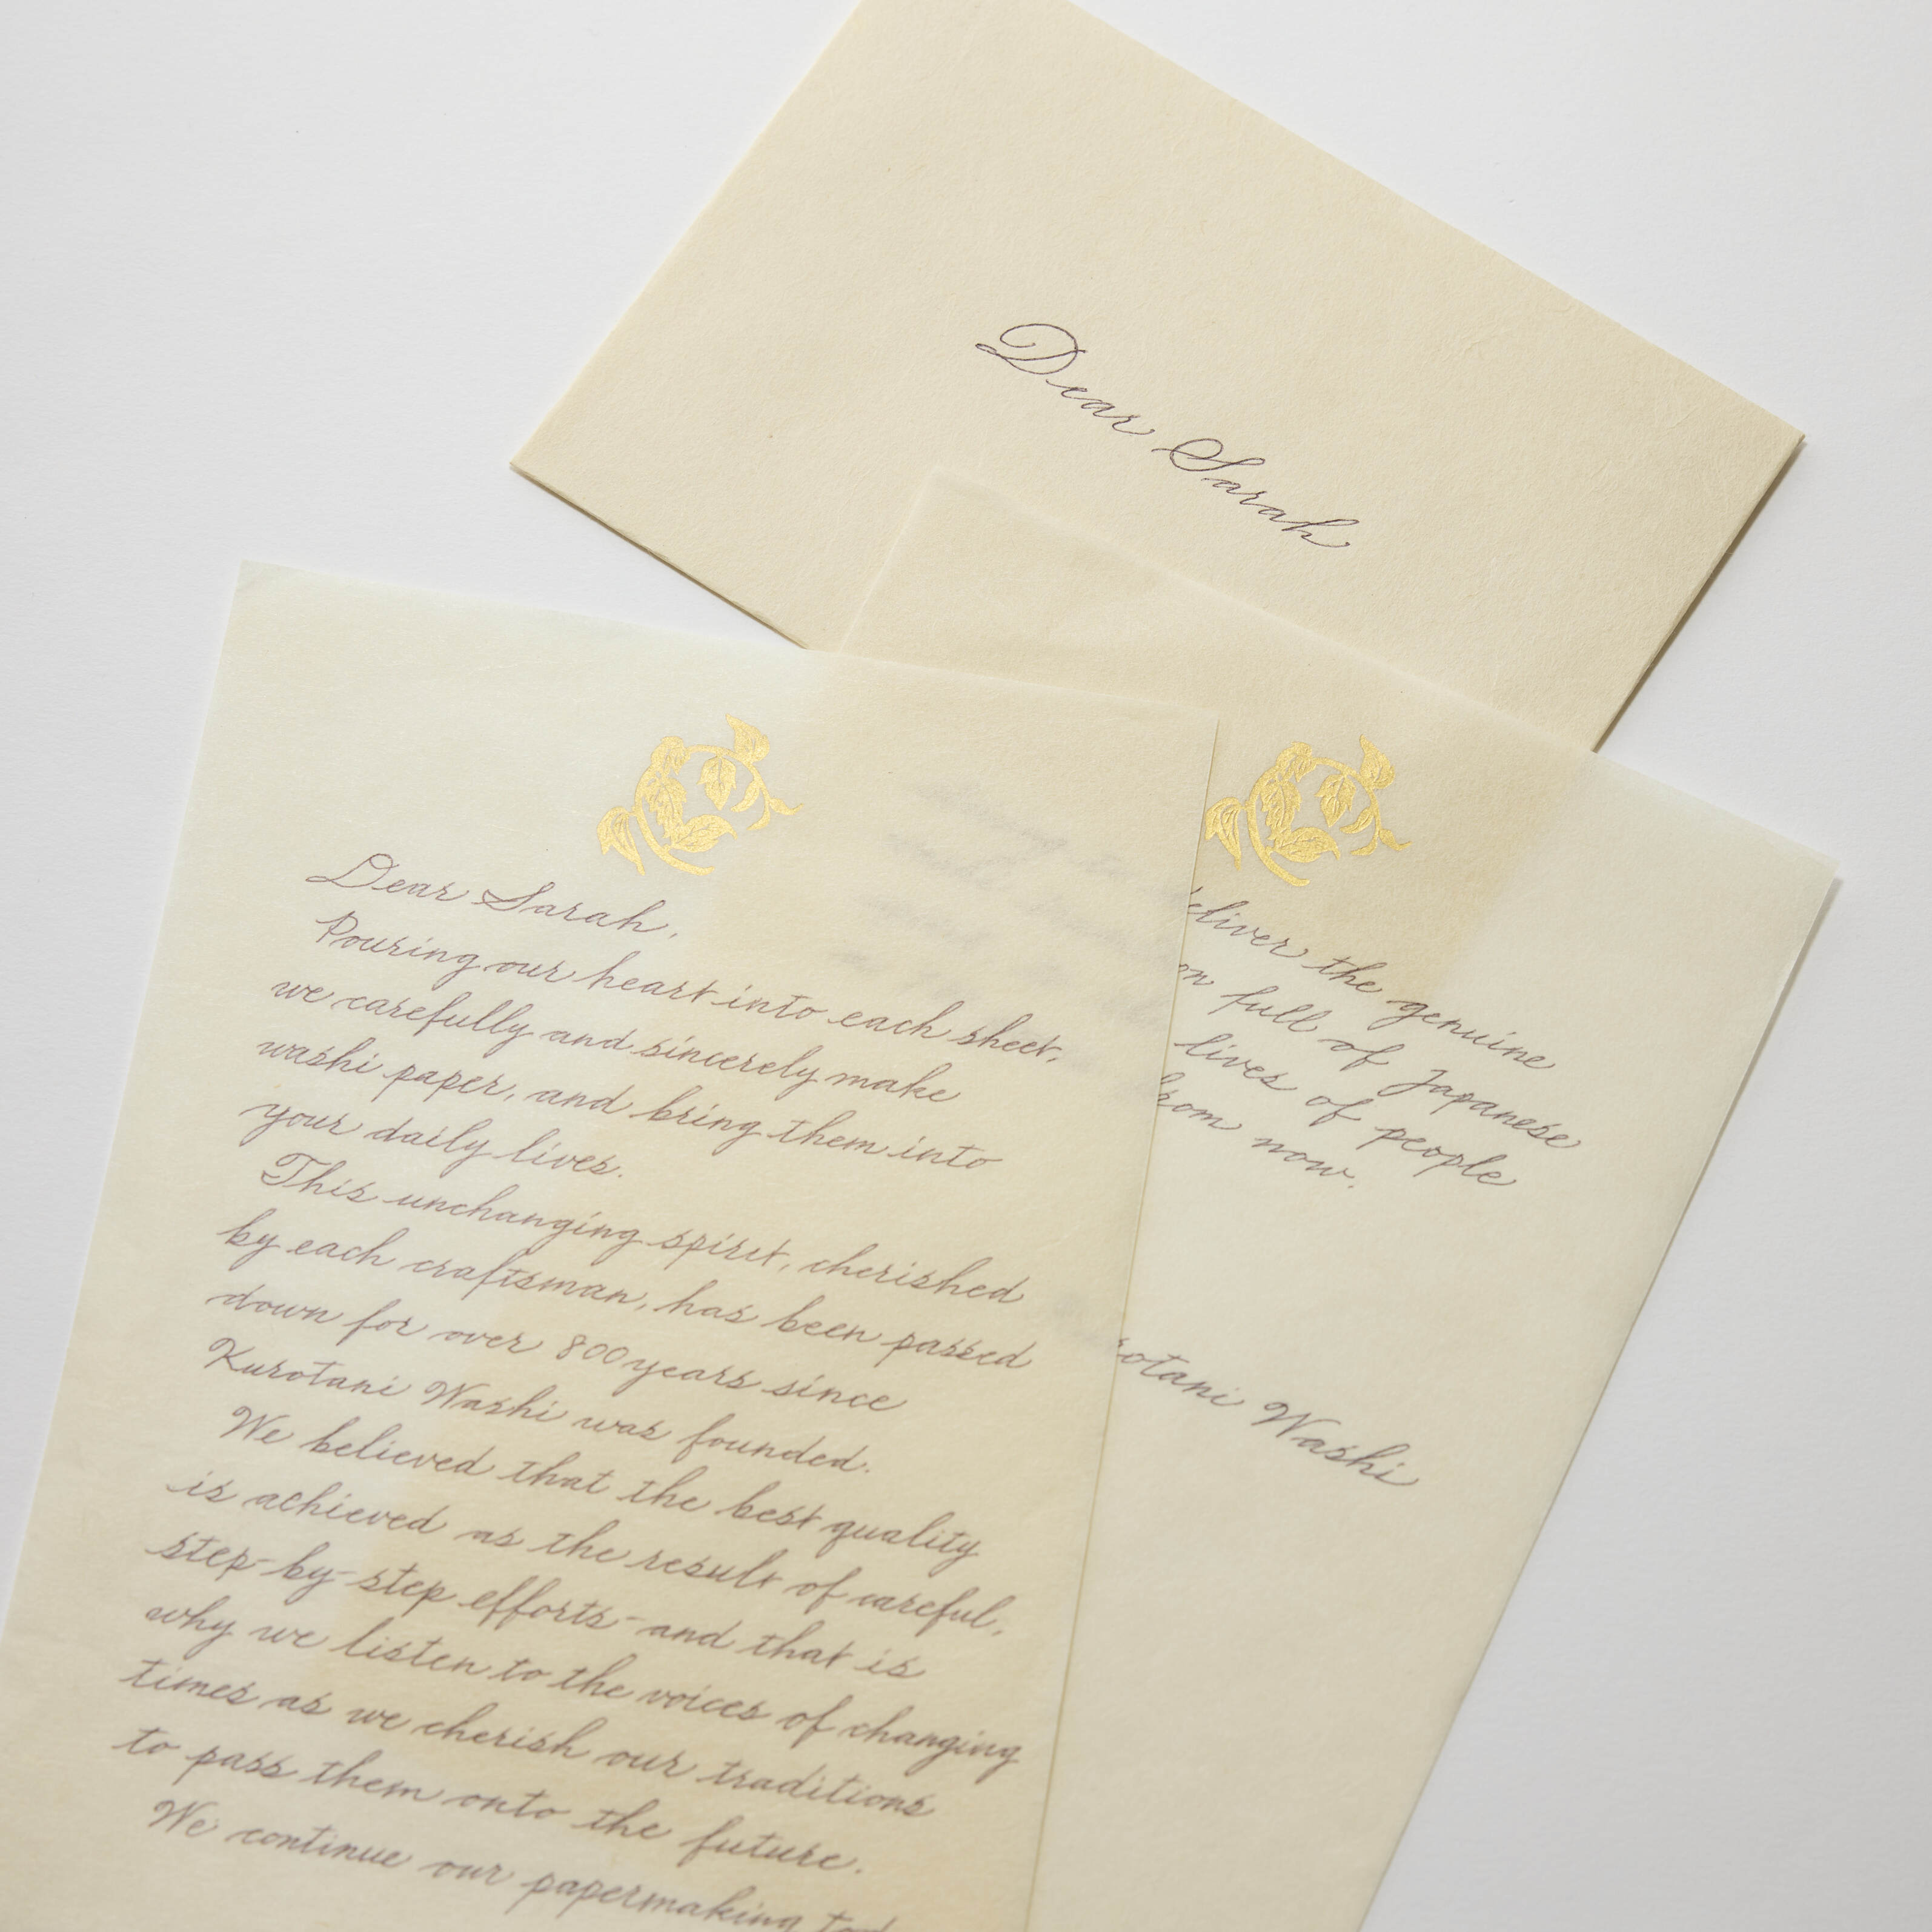 Dear Sarah
Dear Sarah,
Pouring our heart into each sheet,
we carefully and sincerely make
washi paper, and bring them into
your daily lives.
This unchanging spirit, cherished
by each craftsman, has been passed
down for over 800 years since
Kurotani Washi was founded.
We believed that the best quality
is achieved as the result of careful,
step-by-step efforts - and that is
why we listen to the voices of changing
times as we cherish our traditions
to pass them onto the future.
We continue our papermaking
eliver the genuine
on full of Japanese
lives of people
from now.
rotani Washi